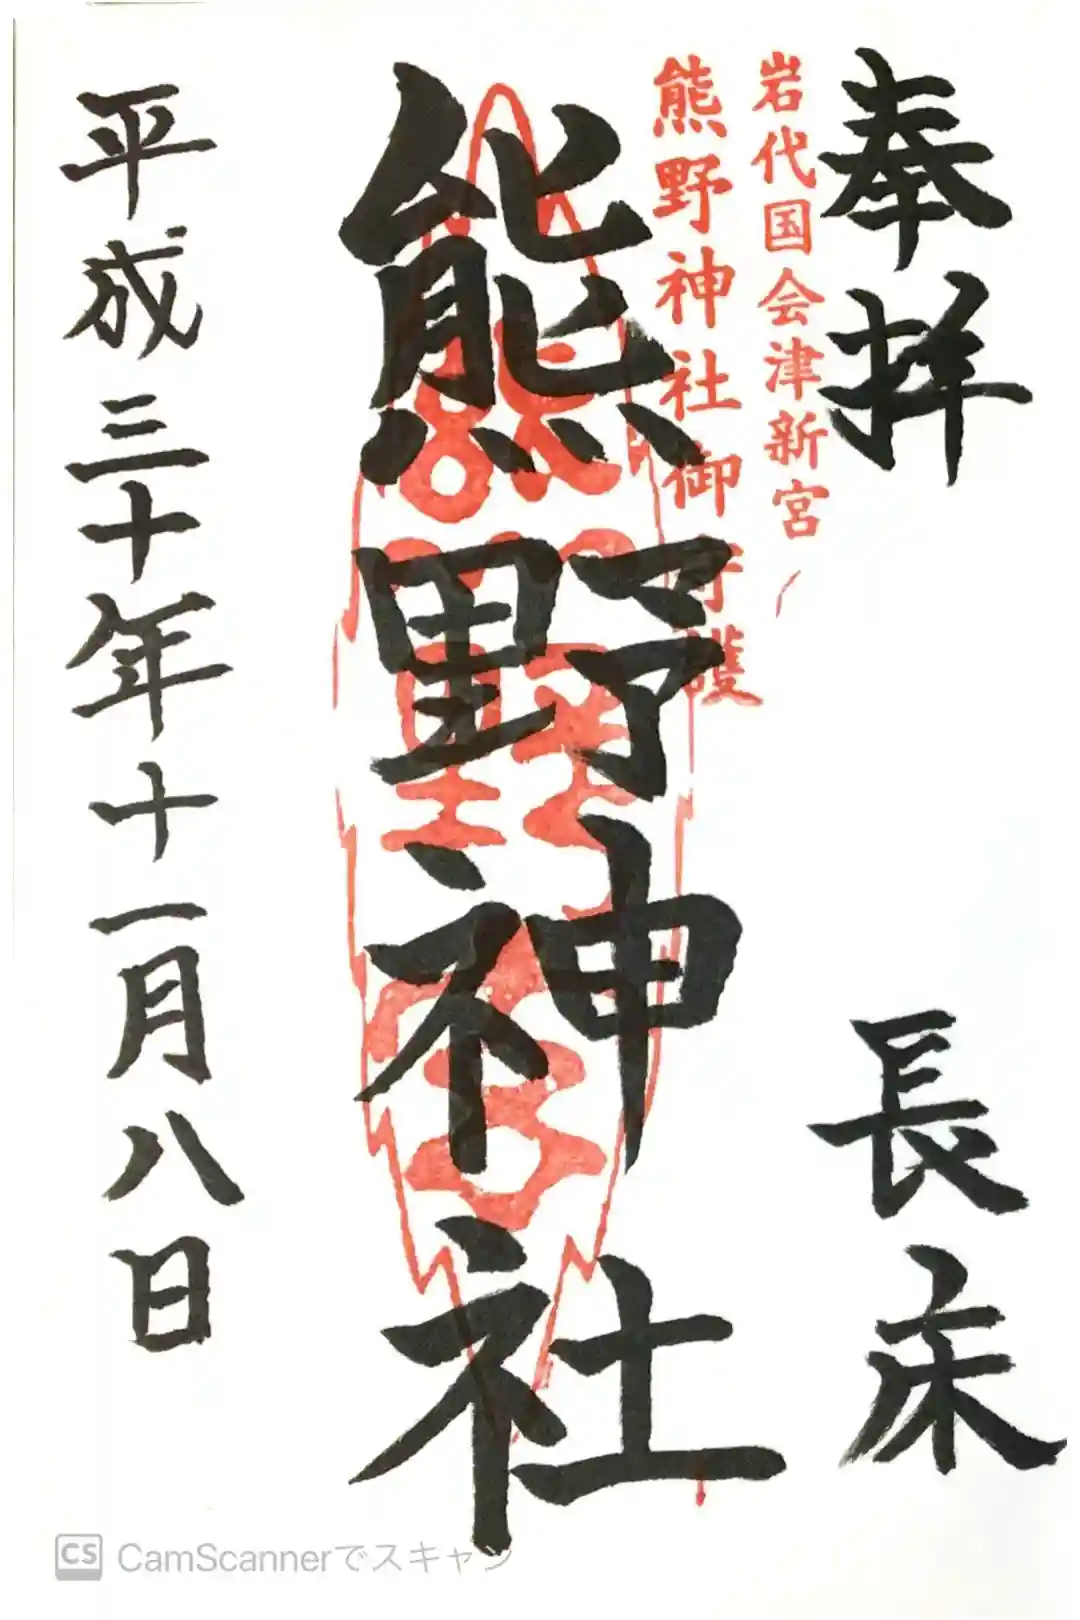 奉拝
長床
岩代国会津新宮
熊野神社御守護
熊野神社
平成三十年十一月八日
CS CamScannerでスキャン